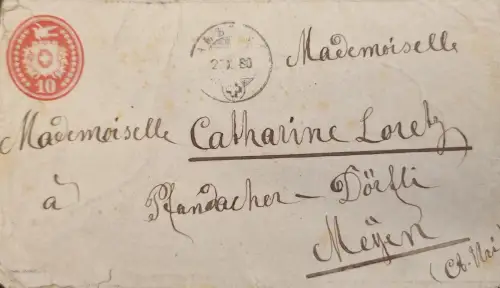 10
2 X 80
Mademoiselle
Mademoiselle Catharine Loretz
à Pfandacher - Dörfli
Meÿen
(Ct. Uri)